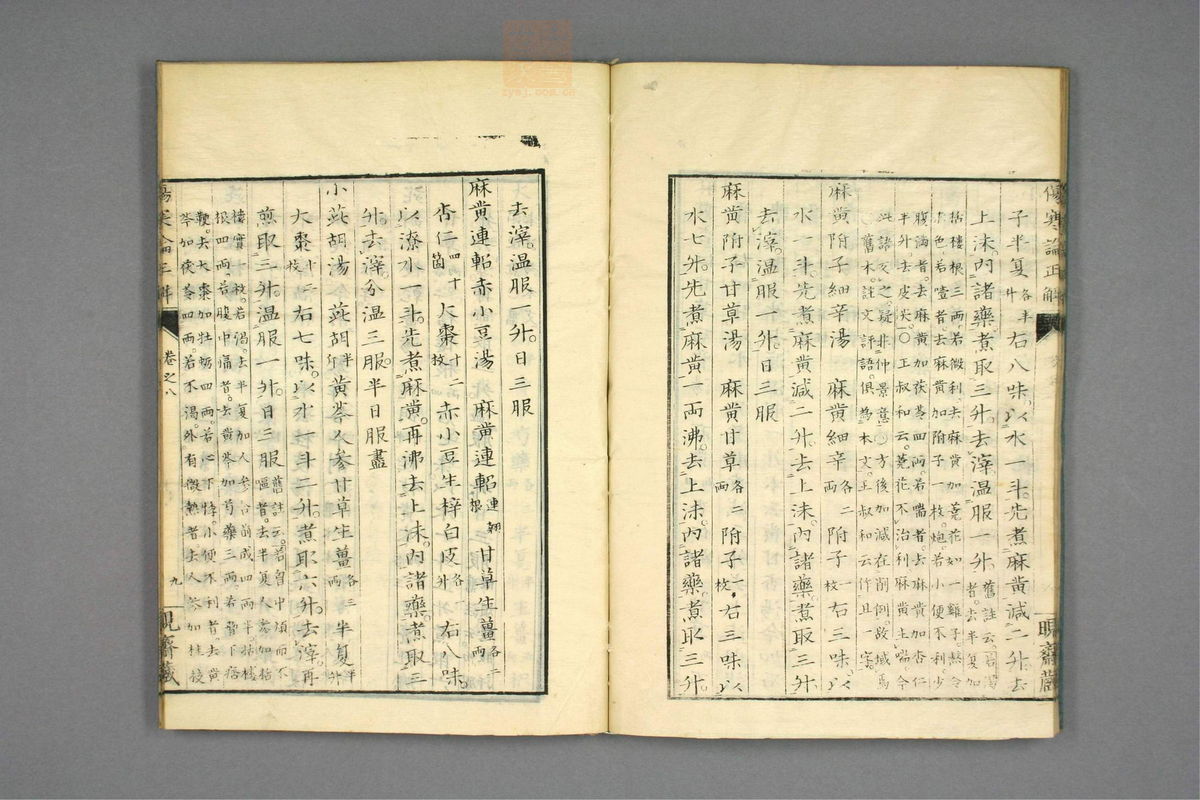 傷寒論正解
子半夏各半升右八味以水一斗先煮麻黃減二升去
上沫內諸藥煮取三升去滓溫服一升舊註云若渴者去半夏加
栝樓根三兩若微利去麻黃加蕘花如一雞子熬令
赤色若噎者去麻黃加附子一枚炮若小便不利少
腹滿者去麻黃加茯苓四兩若喘者去麻黃加杏仁
半升去皮尖○王叔和云蕘花不治利麻黃主喘今
此語反之疑非仲景意○方後加減在削例故域爲
○舊本註文評語俱爲本文王叔和云作且
麻黃附子細辛湯 麻黃細辛各二兩附子一枚右三味以
水一斗先煮麻黃減二升去上沫內諸藥煮取三升
去滓溫服一升日三服
麻黃附子甘草湯 麻黃甘草各二兩附子一枚右三味以
水七升先煮麻黃一兩沸去上沫內諸藥煮取三升
去滓溫服一升日三服
麻黃連軺赤小豆湯 麻黃連軺連翹根甘草生薑各二兩
杏仁四十箇大棗十二枚赤小豆生梓白皮各一升右八味
以潦水一斗先煮麻黃再沸去上沫內諸藥煮取三
升去滓分溫三服半日服盡
小茈胡湯 茈胡半斤黃芩人參甘草生薑各三兩半夏半升
大棗十二枚右七味以水一斗二升煮取六升去滓再
煎取三升溫服一升日三服舊註云若胷中煩而不
嘔者去半夏人參加栝
樓實一枚若渴去半夏加人參合前成四兩半栝樓
根四兩若腹中痛者去黃芩加芍藥三兩若脅下痞
鞕去大棗加牡蠣四兩若心下悸小便不利者去黃
芩加茯苓四兩若不渴外有微熱者去人參加桂枝
傷寒論正解
卷之八
九
晛齋藏
晛齋藏